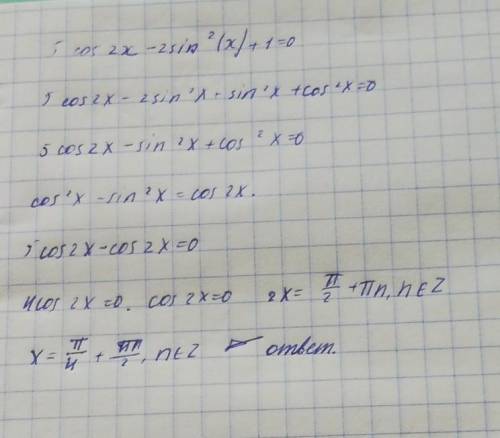 5 cos 2x - 2sin²(x) + 1 = 0
5 cos2x - 2sin²x - sin²x + cos²x = 0
5 cos2x - sin²x + cos²x = 0
cos²x - sin²x = cos 2x.
5cos2x - cos2x = 0
4cos 2x = 0. cos2x = 0 2x = π/2 + πn, n ∈ Z
x = π/4 + πn/2, n ∈ Z ответ.